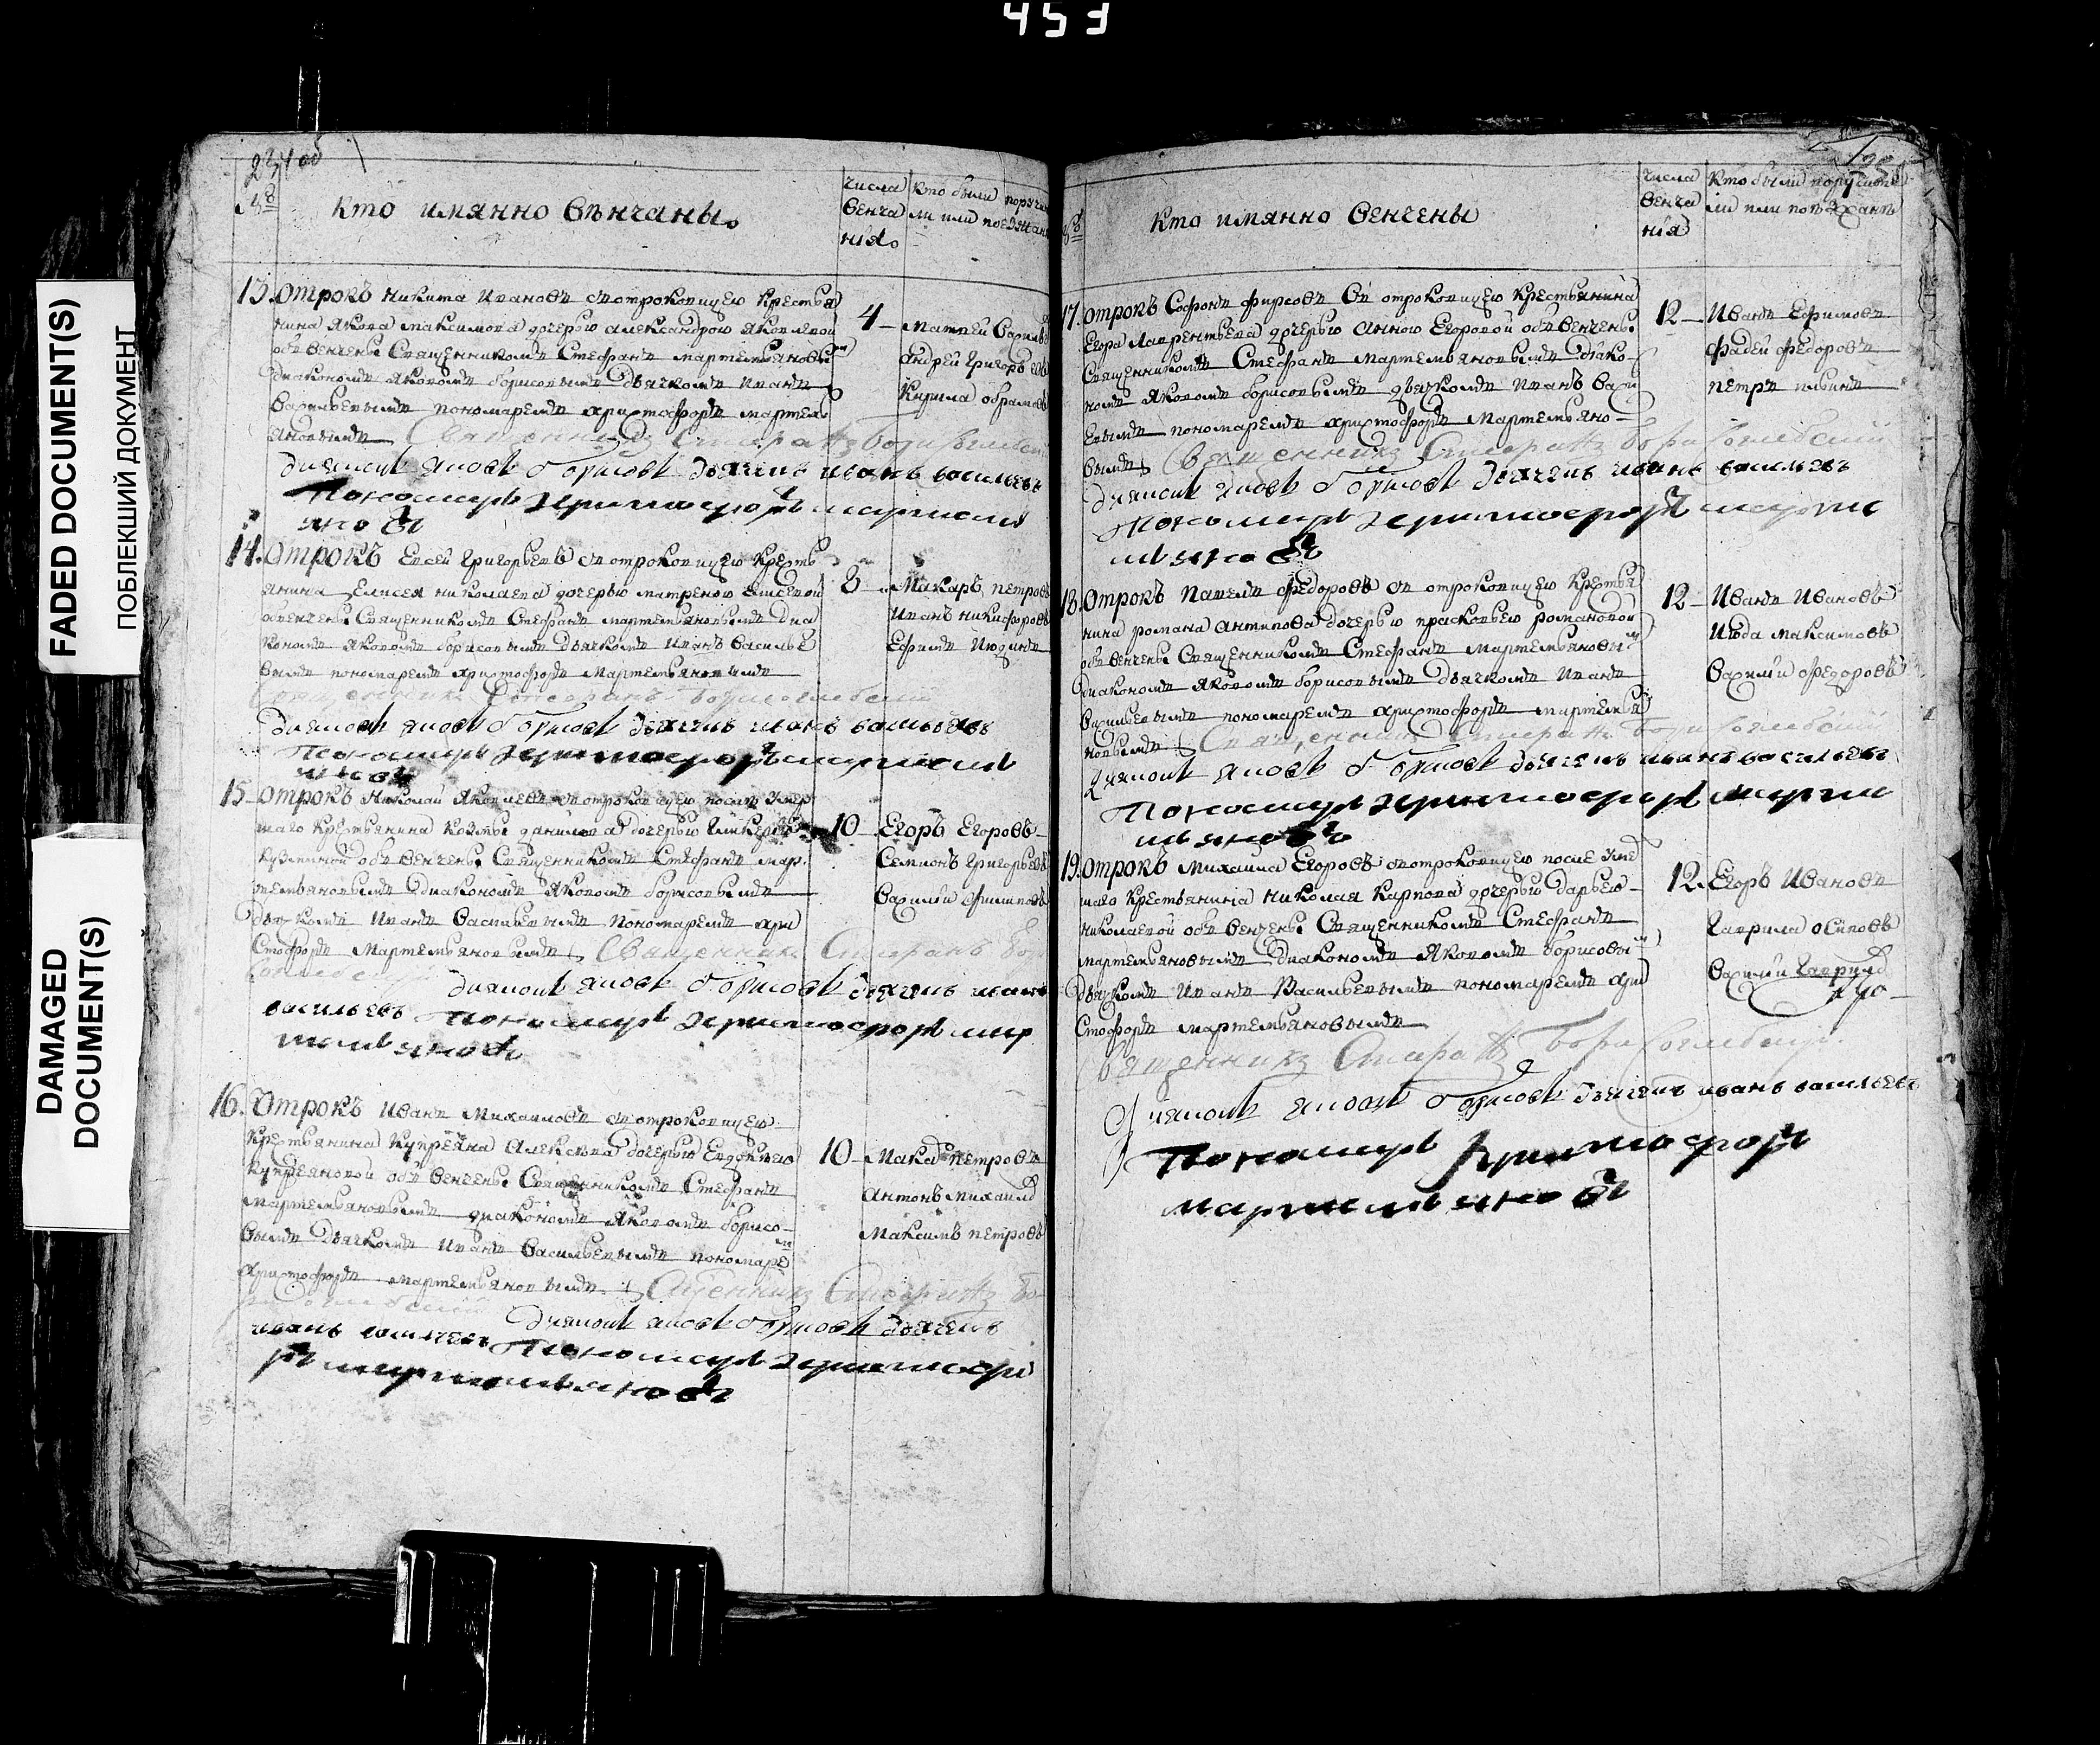 453
FADED DOCUMENT(S)
ПОБЛЕКШИЙ ДОКУМЕНТ
DAMAGED
DOCUMENT(S)
234 об
№
Кто имянно вѣнчаны
числа
венча
нія
Кто были поручи
ли или поезжан
13. Отрокъ Никита Ивановъ съ отроковицею крестья
нина Якова Максимова дочерью Александрою Яковлевой
обвенчены Священникомъ Стефанъ мартемьяновым
диакономъ Яковомъ борисовымъ дьячкомъ Иванъ
Васильевымъ пономаремъ христофоръ мартемь
яновымъ Священникъ Стефанъ борисоглебский
диаконъ яковъ борисовъ дьячекъ иванъ васильевъ
Пономарь христофоръ мартемь
яновъ
4
Матвей Васильев
Андрей Григорьев
Кирила Абрамов
14. Отрокъ Евсей Григорьевъ съ отроковицею кресть
янина Елисея николаева дочерью матреною Елисевой
обвенчены Священникомъ Стефанъ мартемьяновымъ диа
кономъ Яковомъ борисовымъ дьячкомъ Иванъ Василье
вымъ пономаремъ христофоръ Мартемьяновымъ
Священникъ Стефанъ борисоглебский
диаконъ яковъ борисовъ дьячекъ иванъ васильевъ
Пономарь христофоръ мартемь
яновъ
8
Макаръ петров
Иванъ Никифоров
Ефимъ Июдинъ
15. Отрокъ Николай Яковлевъ съ отроковицею после умер
шаго крестьянина козьмы данилова дочерью Гликерьею
кузминой обвенчены Священникомъ Стефанъ мар
темьяновымъ диакономъ Яковомъ борисовымъ
дьячкомъ Иванъ Васильевымъ пономаремъ хри
стофоръ Мартемьяновымъ Священникъ Стефанъ бори
соглебский
диаконъ яковъ борисовъ дьячекъ иванъ
васильевъ Пономарь христофоръ мар
темьяновъ
10
Егоръ Егоровъ
Семионъ Григорьев
Василий Филиповъ
16. Отрокъ Иванъ Михаиловъ съ отроковицею
крестьянина Купреяна Алексѣева дочерью Евдокиею
купреяновой обвенчены Священникомъ Стефанъ
мартемьяновымъ диакономъ Яковомъ борисо
вымъ дьячкомъ Иванъ Васильевымъ пономаре
христофоръ мартемьяновымъ Священникъ Стефанъ бо
рисоглебский
диаконъ яковъ борисовъ дьячекъ
иванъ васильевъ Пономарь христофо
ръ мартемьяновъ
10
Макаръ петровъ
Антонъ Михаилов
Максимъ петровъ
№
Кто имянно венчены
числа
венча
нія
Кто были поручите
ли или поѣзжанѣ
17. Отрокъ Софонъ фирсовъ съ отроковицею крестьянина
Егора Лаврентьева дочерью Анною Егоровой обвенчены
Священникомъ Стефанъ Мартемьяновымъ диако
номъ Яковомъ борисовымъ дьячкомъ Иванъ Васи
евымъ пономаремъ христофоръ Мартемьяно
вымъ Священникъ Стефанъ борисоглебский
диаконъ яковъ борисовъ дьячекъ иванъ васильевъ
Пономарь христофоръ марте
мьяновъ
12
Иванъ Ефимовъ
Фадей Федоровъ
петръ ильинъ
18. Отрокъ Павелъ Федоровъ съ отроковицею крестья
нина романа антипова дочерью прасковьею романовой
обвенчены Священникомъ Стефанъ Мартемьяновым
диакономъ Яковомъ борисовымъ дьячкомъ Иванъ
Васильевымъ пономаремъ христофоръ мартемья
новымъ Священникъ Стефанъ борисоглебский
диаконъ яковъ борисовъ дьячекъ иванъ васильевъ
Пономарь христофоръ марте
мьяновъ
12
Иванъ Ивановъ
Июда максимовъ
Василий Федоровъ
19. Отрокъ Михаила Егоровъ съ отроковицею после умер
шаго крестьянина Николая Карпова дочерью Дарьею
николаевой обвенчены Священникомъ Стефанъ
мартемьяновымъ диакономъ Яковомъ борисовым
дьячкомъ Иванъ Васильевымъ пономаремъ хри
стофоръ мартемьяновымъ
Священникъ Стефанъ борисоглебский
диаконъ яковъ борисовъ дьячекъ иванъ васильевъ
Пономарь христофоръ
мартемьяновъ
12
Егоръ Ивановъ
Гаврила осиповъ
Василий Гаврилов